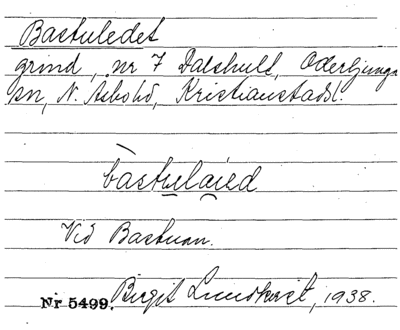 Bastuledet
grind, nr 7 Dalshult, Oderljunga
sn, N. Åsbo hd, Kristianstads l.
bastuláied
Vid Bastuan.
Nr 5499. Birgit Lundkvist, 1938.